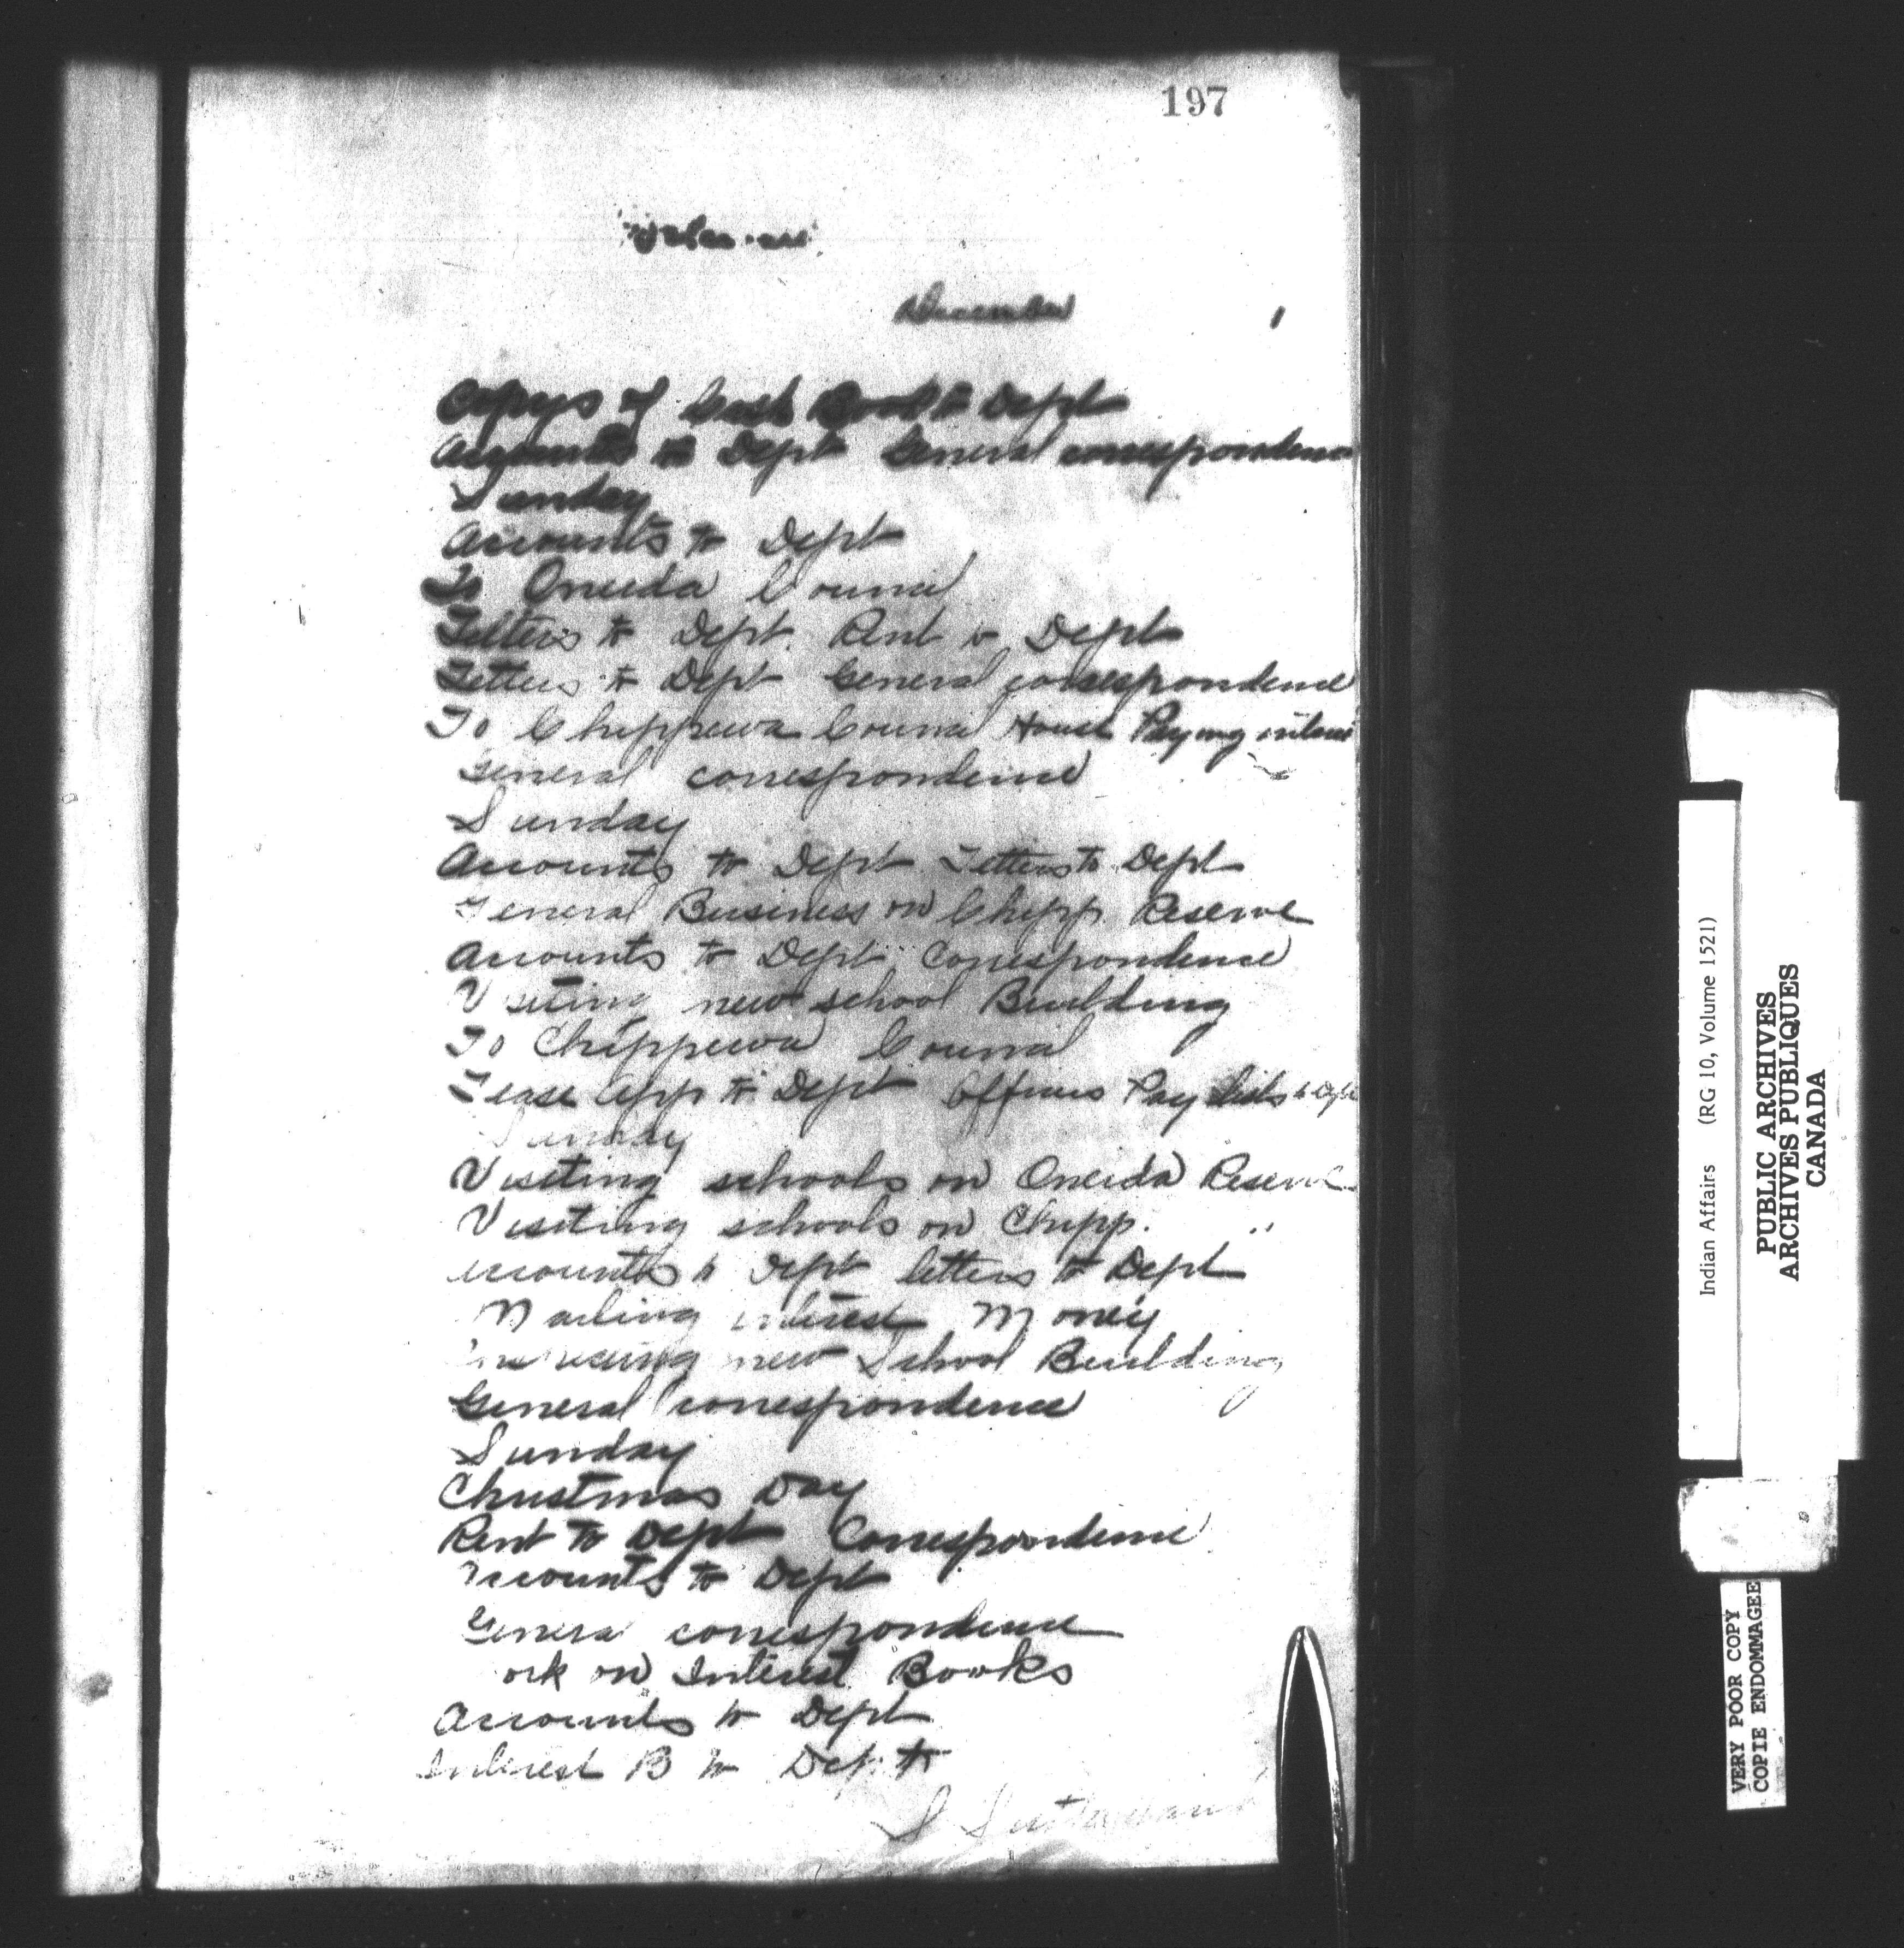 197
December 1
Copys of Cash Book to Dept
Accounts to Dept General correspondence
Sunday
Accounts to Dept
To Oneida Council
Letters to Dept. Rent to Dept
Letters to Dept General correspondence
To Chippewa Council House Paying interest
General correspondence
Sunday
Accounts to Dept Letters to Dept
General Business on Chipp. Reserve
Accounts to Dept Correspondence
Visiting new school Building
To Chippewa Council
Lease App to Dept Officers Pay Lists to Dept
Sunday
Visiting schools on Oneida Reserve
Visiting schools on Chipp. "
accounts to Dept letters to Dept
Mailing interest Money
new School Building
General correspondence
Sunday
Christmas Day
Rent to Dept Correspondence
Accounts to Dept
General correspondence
ork on Interest Books
Accounts to Dept
Interest B to Dept
S Sutherland
Indian Affairs (RG 10, Volume 1521)
PUBLIC ARCHIVES
ARCHIVES PUBLIQUES
CANADA
VERY POOR COPY
COPIE ENDOMMAGEE